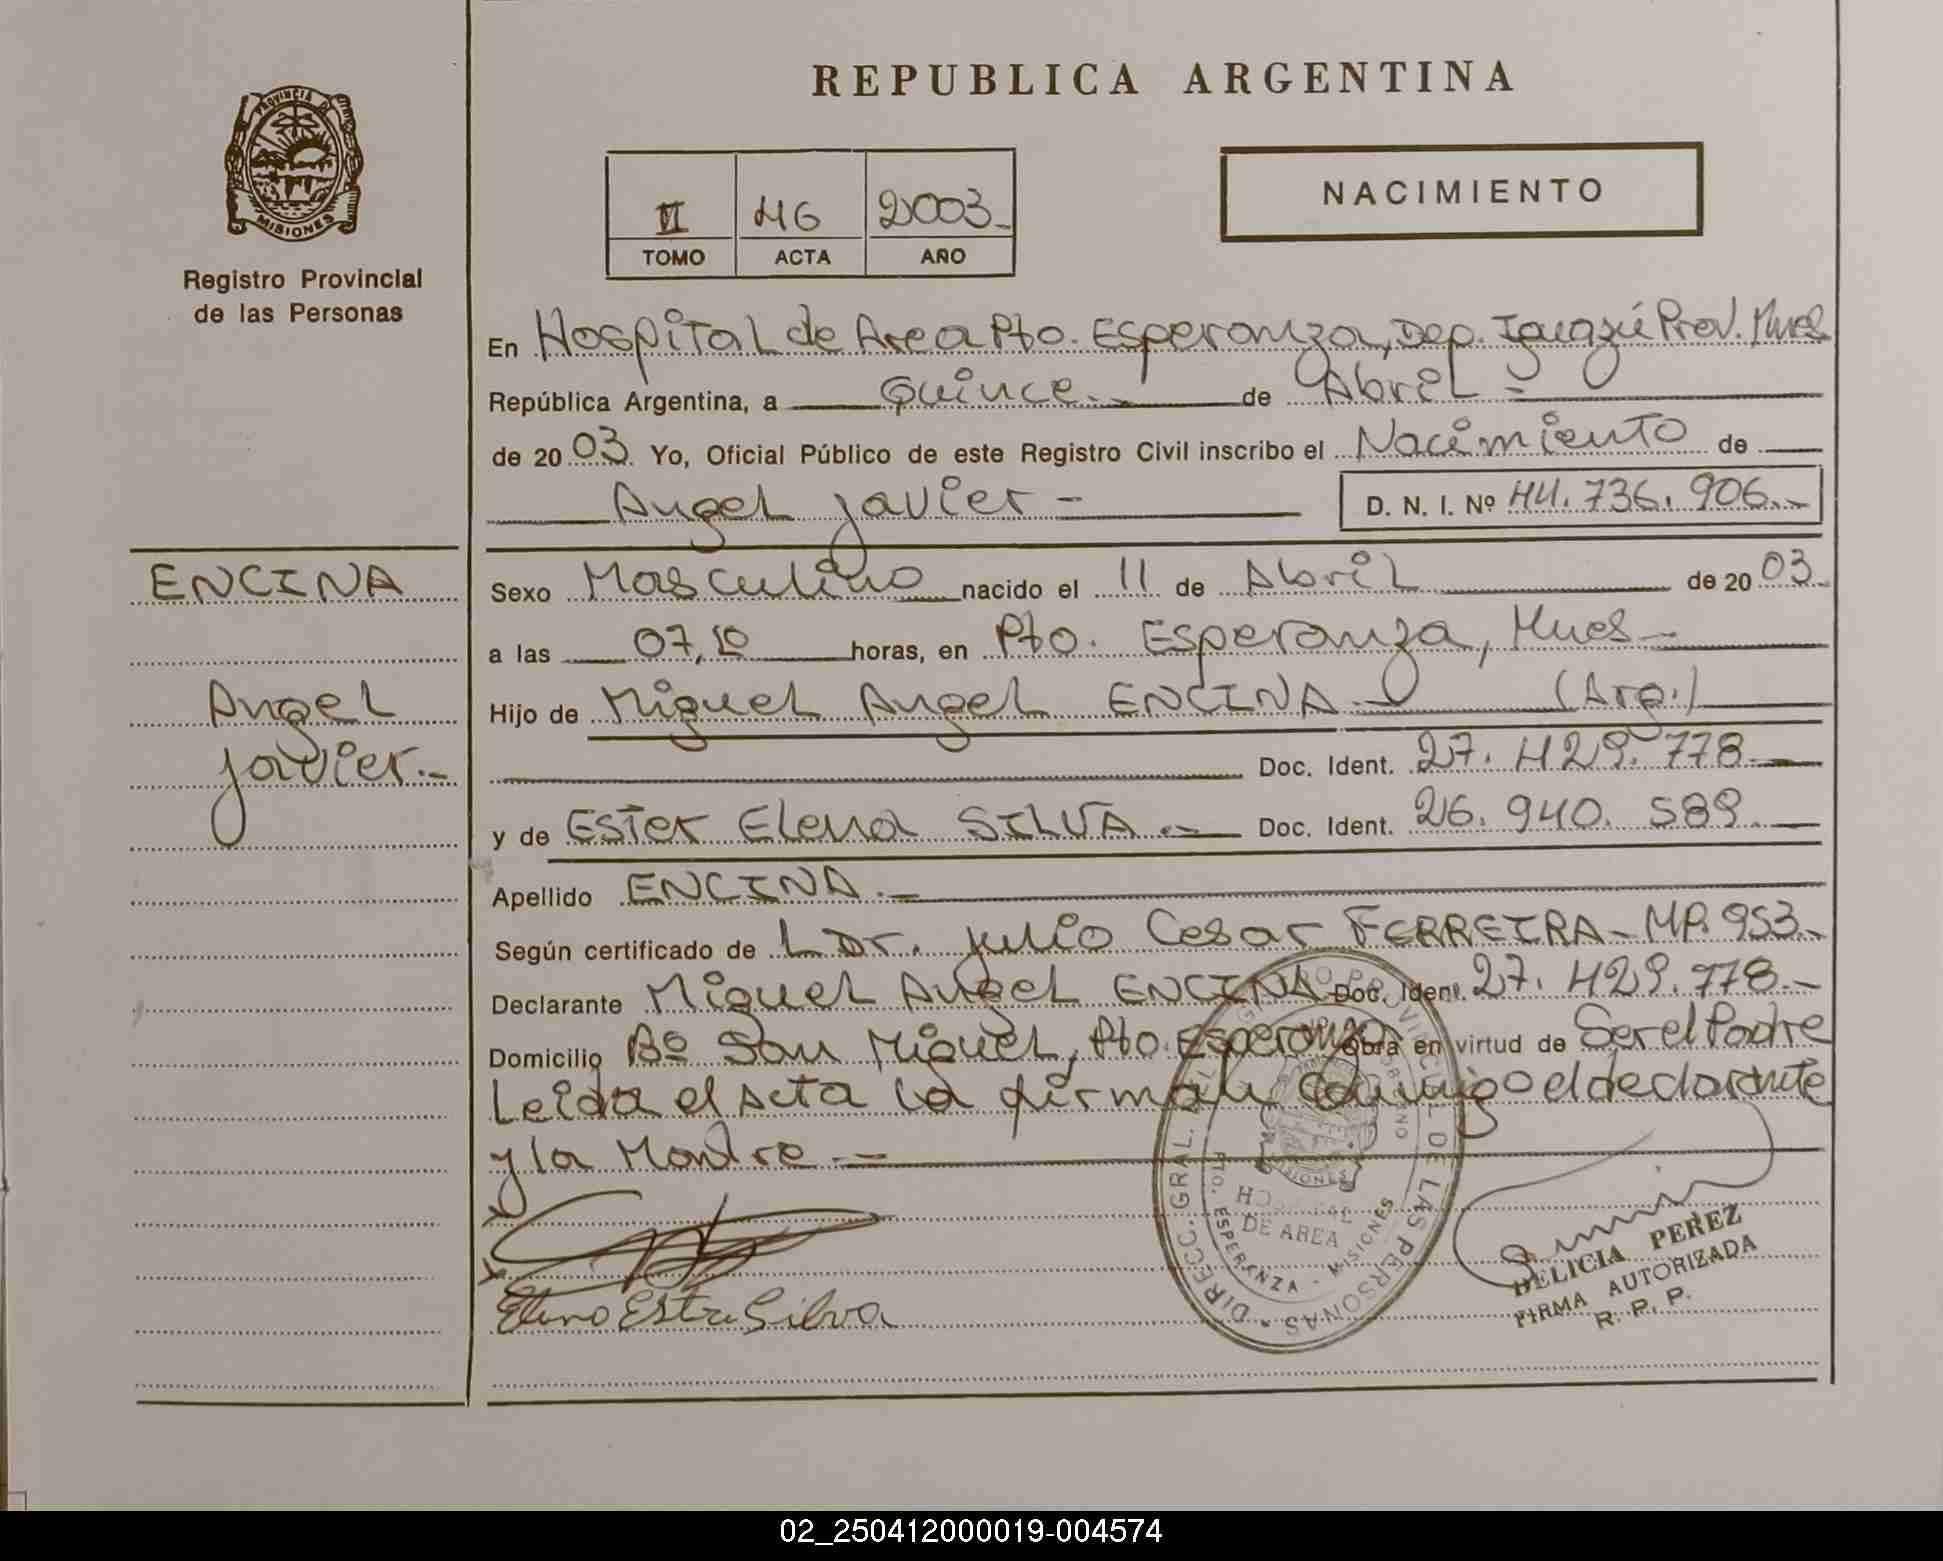 REPUBLICA ARGENTINA
PROVINCIA DE
MISIONES
Registro Provincial
de las Personas
II 46 2003.-
TOMO ACTA AÑO
NACIMIENTO
En Hospital de Area Pto. Esperanza, Dep. Iguazú Prov. Mnes
República Argentina, a Quince.- de Abril -
de 20 03. Yo, Oficial Público de este Registro Civil inscribo el Nacimiento de
Angel Javier -
D. N. I. Nº 44.736.906.-
ENCINA
Angel
Javier.-
Sexo Masculino nacido el 11 de Abril de 20 03.
a las 07,10 horas, en Pto. Esperanza, Mnes -
Hijo de Miguel Angel ENCINA.- (Arg.)
Doc. Ident. 27.429.778.-
y de Ester Elena SILVA.- Doc. Ident. 26.940.589.-
Apellido ENCINA.-
Según certificado de L Dr. Julio Cesar FERREIRA - MP. 953.-
Declarante Miguel Angel ENCINA Doc. Ident. 27.429.778.-
Domicilio Bº San Miguel, Pto. Esperanza Obra en virtud de Ser el Padre
Leida el Acta la firman conmigo el declarante
y la Madre.-
Elena Ester Silva
DIRECC. GRAL. DEL REGISTRO PROVINCIAL DE LAS PERSONAS
MISIONES
HOSPITAL
DE AREA
PTO. ESPERANZA - MISIONES
DELICIA PEREZ
FIRMA AUTORIZADA
R. P. P.
02_250412000019-004574